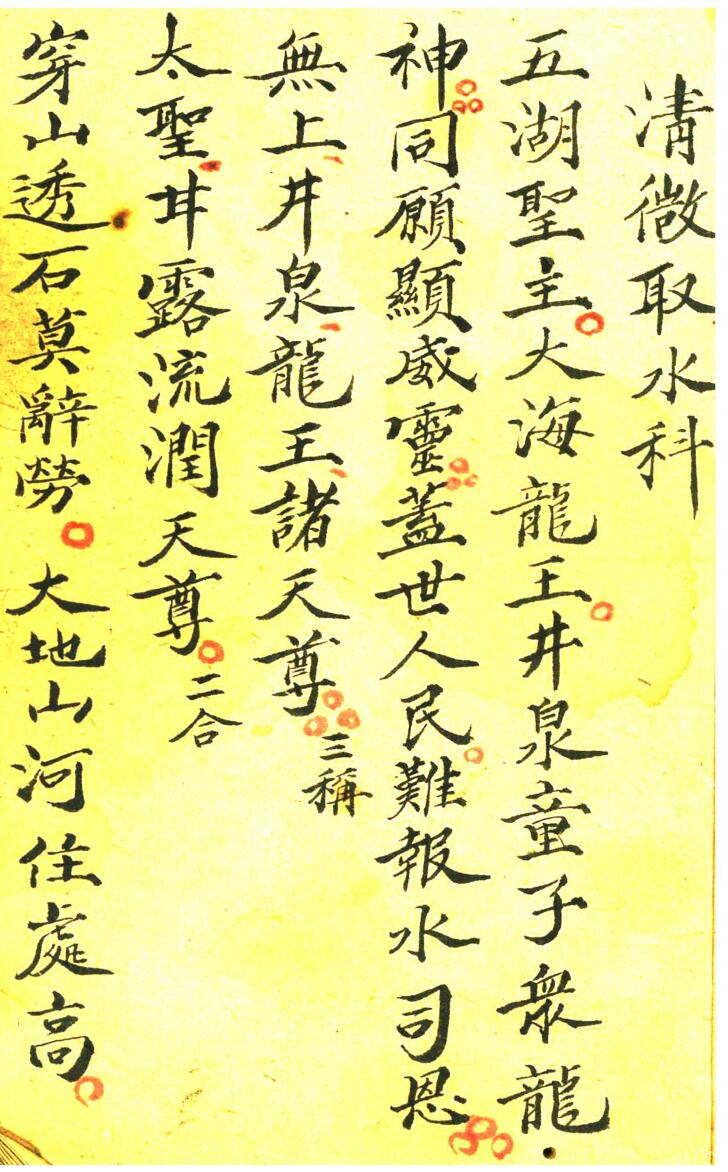 清微取水科
五湖聖主大海龍王井泉童子衆龍
神同願顯威靈蓋世人民難報水司恩
無上井泉龍王諸天尊三稱
太聖甘露流潤天尊二合
穿山透石莫辭勞大地山河住處高